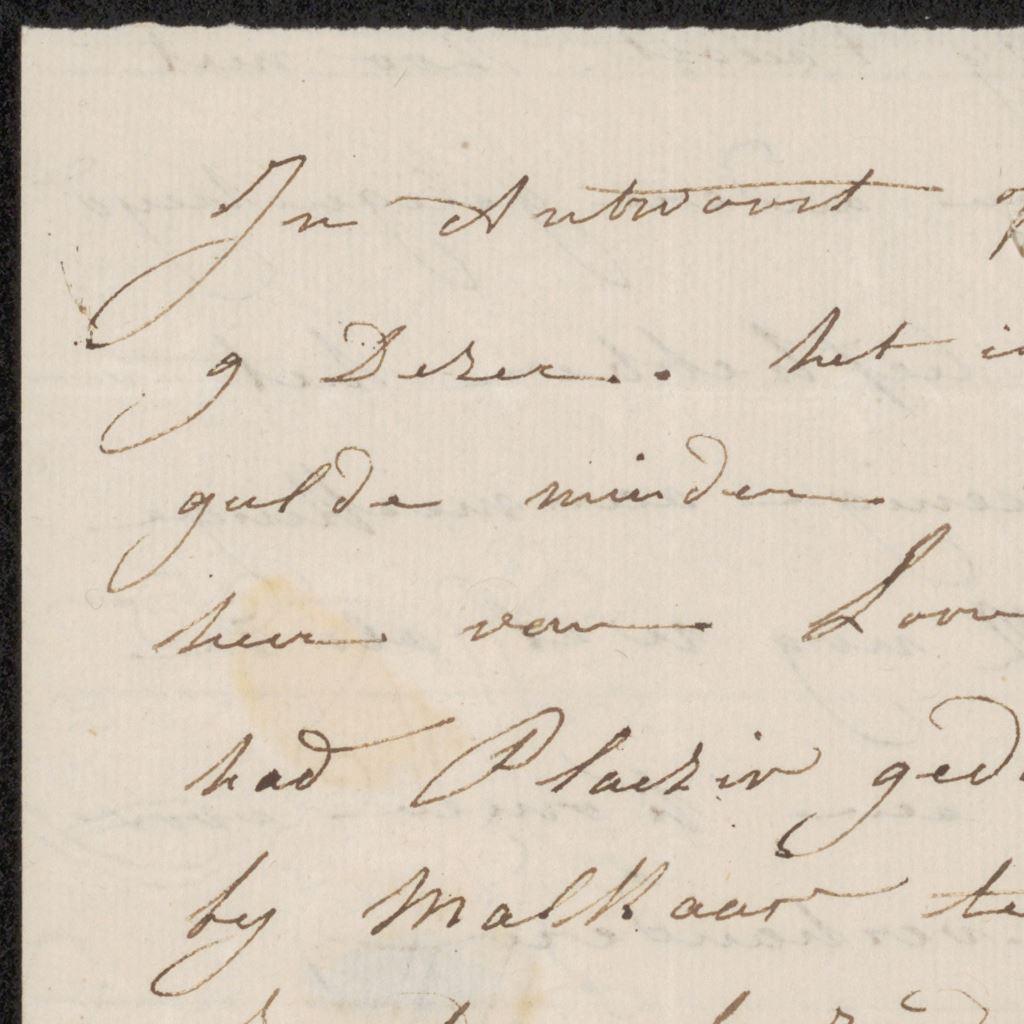 In Antwoort
9 Dezer.. het
gulde minder
heer van Loon
had Plaezir
by malkaar te